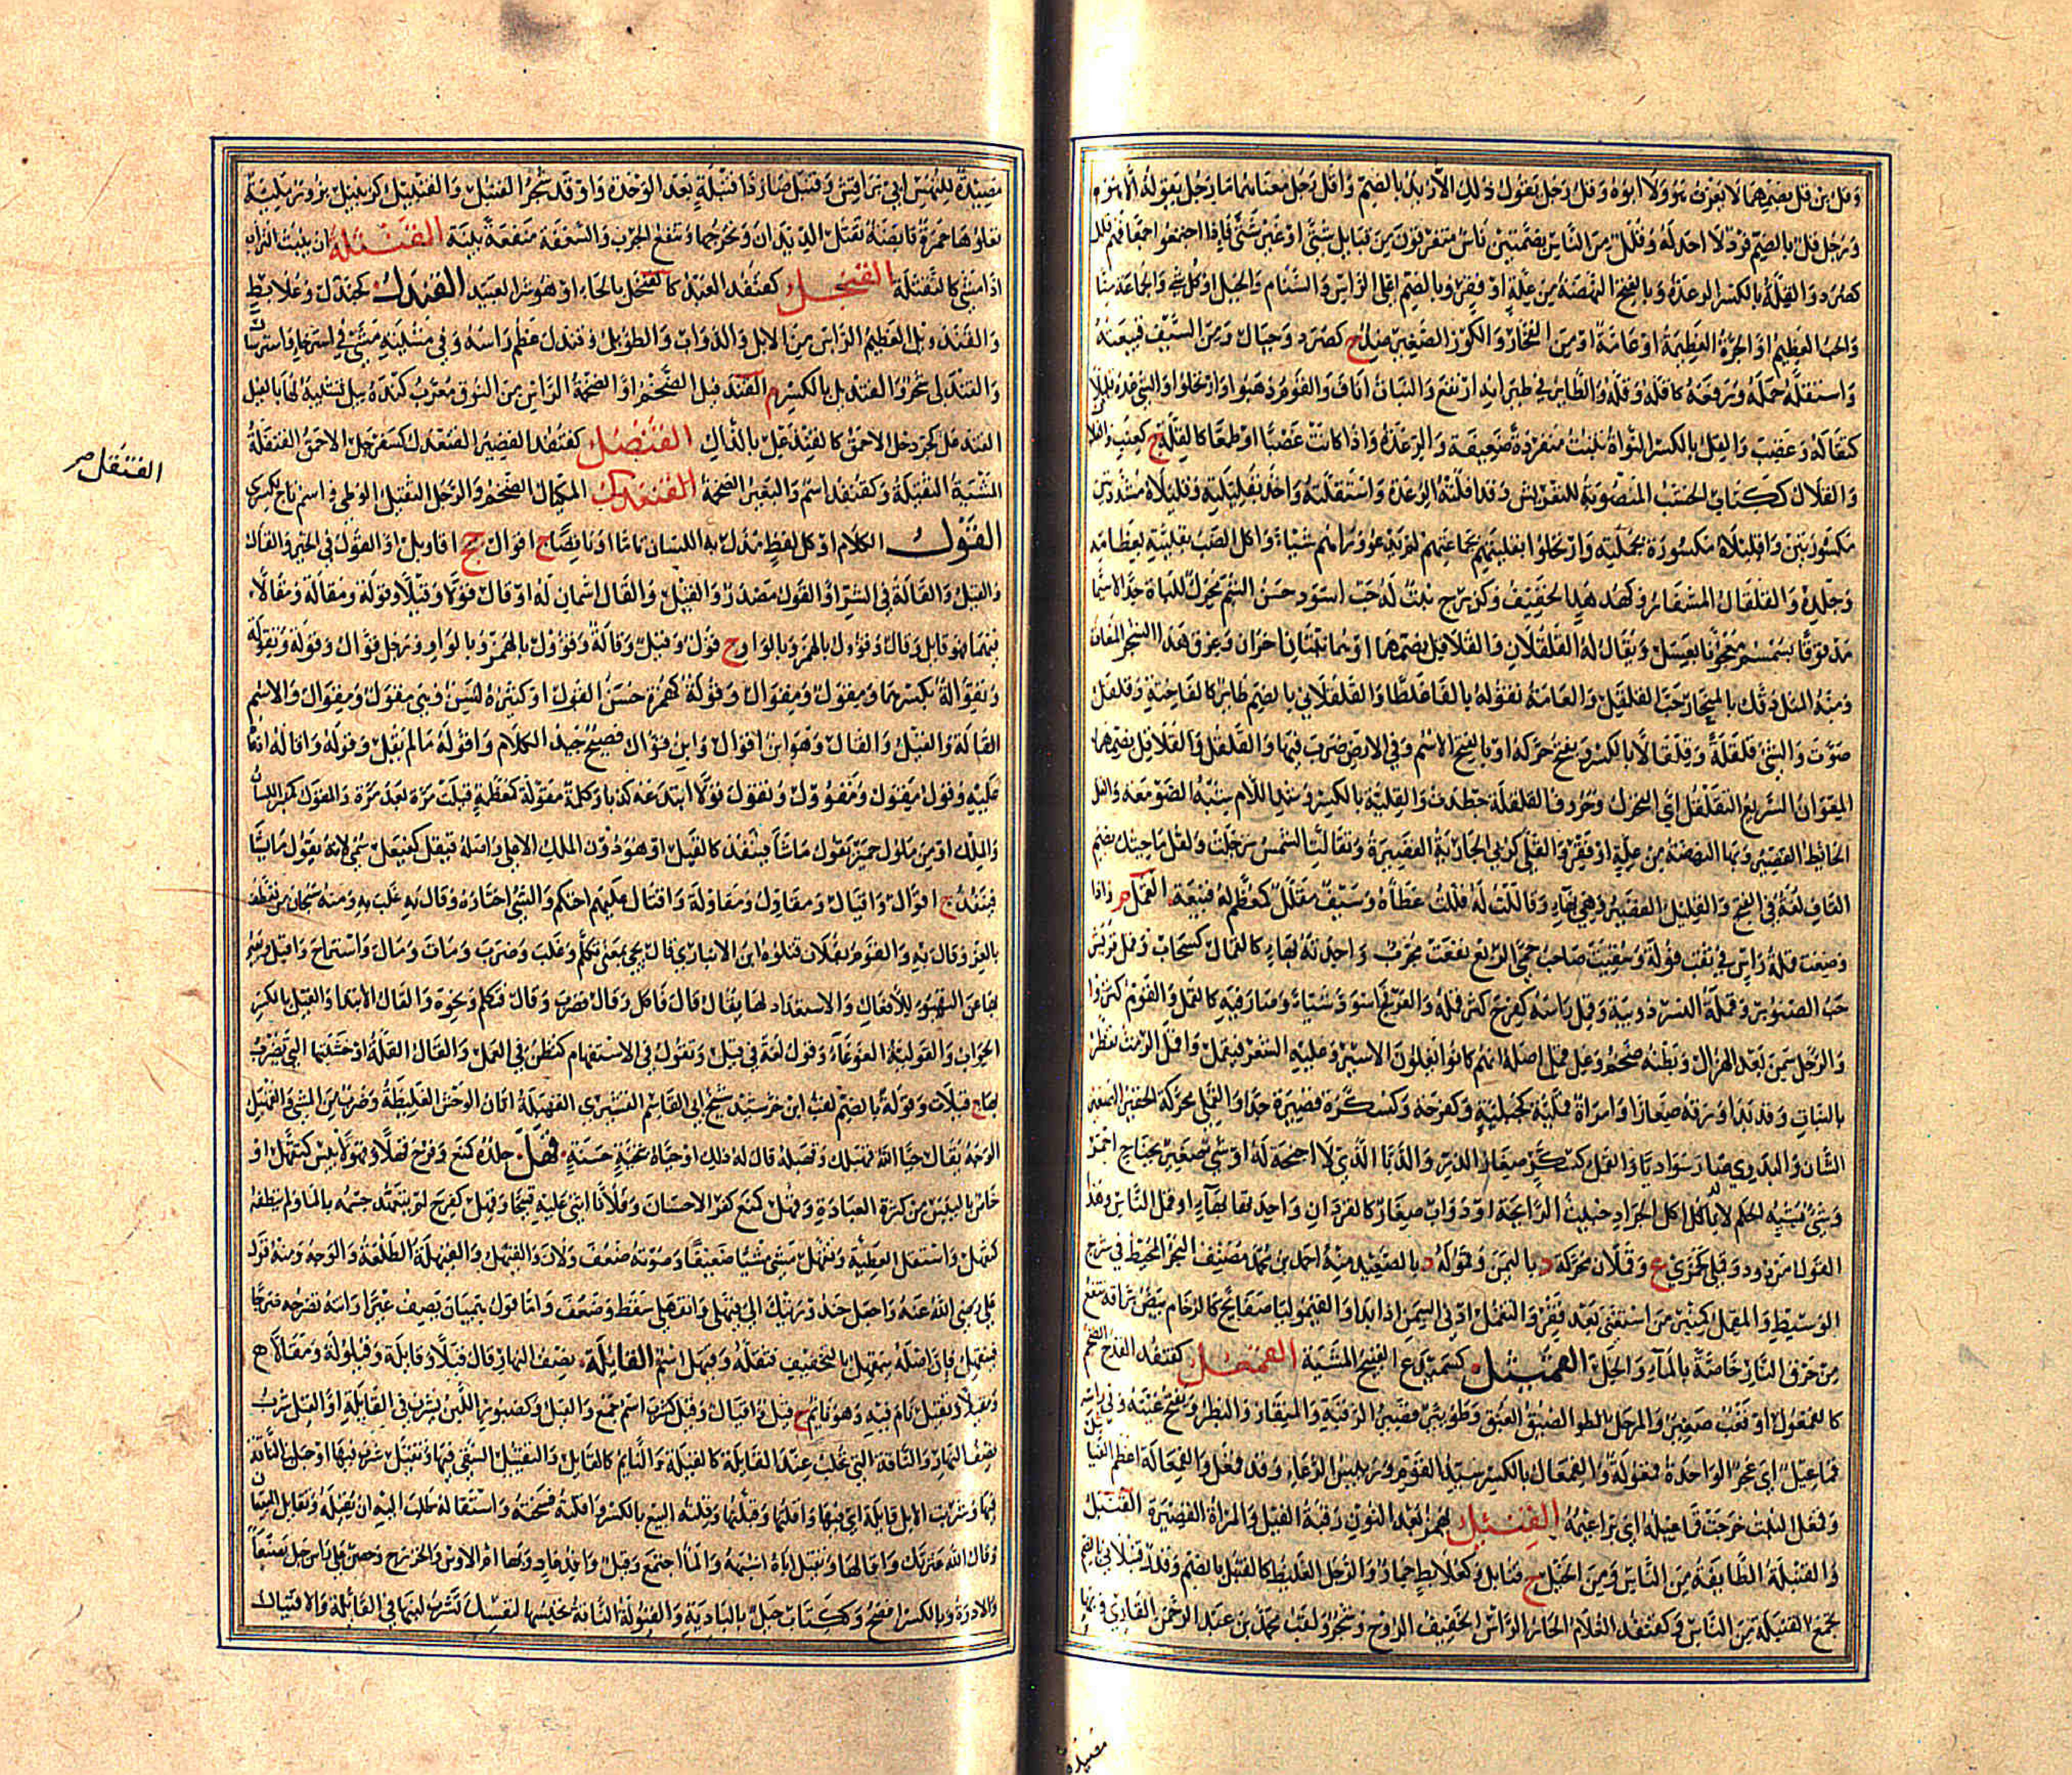 وقل بن قل بضمهما لا يعرف هو ولا ابوه وقل رجل يقول ذلك الا زيد بالضم واقل رجل معناهما ما رجل يقوله الا هو
ورجل قل بالضم فرد لا احد له وقلل من الناس بضمتين ناس متفرقون من قبايل شتى او غير شتى فاذا اجتمعوا جمعا فهم قلل
كصرد والقلة بالكسر الرعدة وبالفتح النهضة من علة او فقر وبالضم اعلى الراس والسنام والجبل او كل شي والجماعة منا
والحب العظيم او الجرة العظيمة او عامة او من الفخار والكوز الصغير ضد ج كصرد وجبال ومن السيف قبيعته
واستقله حمله ورفعه كاقله وقله والطاير في طيرانه ارتفع والنبات اناف والقوم ذهبوا وارتحلوا والشي عده قليلا
كتقاله وغضب والقل بالكسر النواة تنبت منفردة ضعيفة والرعدة واذا كانت غضبا او طمعا كالقلة ج كعنب
والقلال ككتاب الخشب المنصوبة للتعريش وقد اقلته الرعدة واستقلته واخذ بقليلته وقليلاه مشددتين
مكسورتين واقليلاه مكسورة بجملته وارتحلوا بقليتهم بجماعتهم لم يدعوا وراهم شيا واكل الضب بقليته بعظامه
وجلده والقلقال المسفار وكهدهد الخفيف وكزبرج نبت له حب اسود حسن الشم محرك للباءة جدا لاسيما
مدقوقا بسمسم معجونا بعسل ويقال له القلقلان والقلاقل بضمهما او هما نبتان اخران وعرق هذا الشجر المغاث
ومنه المثل دقك بالمنحاز حب القلقل والعامة تقوله بالفا غلطا والقلقلاني بالضم طاير كالفاختة وقلقل
صوت والشي قلقلة وقلقالا بالكسر ويفتح حركه او بالفتح الاسم وفي الارض ضرب فيها والقلقل والقلاقل بضمهما
المعوان السريع التقلقل اي التحرك وحروف القلقلة جطدقب والقلية بالكسر وشد اللام شبه الصومعة والقل
الحايط القصير وبها النهضة من علة او فقر والقلى كربى الجارية القصيرة وتقالت الشمس ترحلت ولقل ما جيتك بضم
القاف لغة في الفتح والقليل القصير وهي بهاء وقاللت له قللت عطاه وسيف مقلل كمعظم له قبيعة القمل م واذا
وضعت قملة راس في ثقب فولة وسقيت صاحب حمى الربع نفعت مجرب واحدته بهاء كالقمال كسحاب وقمل قريش
حب الصنوبر وقملة النسر دويبة وقمل راسه كفرح كثر قمله والعرفج اسود شيا وصار فيه كالقمل والقوم كثروا
والرجل سمن بعد الهزال وبطنه ضخم وغل قمل اصله انهم كانوا يغلون الاسير وعليه الشعر فيقمل واقل الرمث تفطر
بالنبات وقد بدا ورقه صغارا وامراة قملية كجبلية وكفرحة وكسكرة قصيرة جدا والقملي محركة الحقير الصغير
الشان والبدوي صار سواديا والقمل كسكر صغار الذر والدبا الذي لا اجنحة له او شي صغير بجناح احمر
وشي يشبه الحلم لا ياكل اكل الجراد خبيث الرايحة او دواب صغار كالقردان واحدتها بهاء او قمل الناس وهذا
القول مردود وقملى كجمزى ع وقملان محركة د باليمن وقمولة د بالصعيد منه احمد بن محمد مصنف البحر المحيط في شرح
الوسيط والمقمل كمنبر من استغنى بعد فقر والتقمل ادنى السمن اذا بدا والقيموليا صفايح كالرخام بيض براقة تنفع
من حرق النار خاصة بالماء والخل القميثل كسميدع القبيح المشية القمعل كقنفذ القدح الضخم
كالقمعول او قعب صغير والمرجل الطو الضيق العنق وطويير قصير الرقبة والمنقار والبظر ويفتح عينه وفي راسه
قماعيل اي عجر الواحدة قمعولة والقمعال بالكسر سيد القوم ورييس الرعاء وقد قمعل والقمعالة اعظم الفيا
وقمعل النبت خرجت قماعيله اي براعيمه القنبل بهمز بعد النون رقبة الفيل والمراة القصيرة القنبل
والقنبلة الطايفة من الناس ومن الخيل ج قنابل وكعلابط حمار والرجل الغليظ كالقنبل بالضم وقدر قنبلاني بالضم
تجمع القنبلة من الناس وكقنفذ الغلام الحار الراس الخفيف الروح وشجر ولقب محمد بن عبد الرحمن القاري وبها
مصيدة
مصيدة للنهس ابي براقش وقنبل صار ذا قنبلة بعد الوحدة واوقد شجر القنبل والقنبيل كزنبيل بزور رملية
تعلوها حمرة قابضة تقتل الديدان وتخرجها وتنفع الجرب والسعفة منفعة بلية القنثلة ان ينبث التراب
اذا مشى كالنقثلة القنجل كقنفذ العبد كالقنحل بالحاء او هو شر العبيد القندل كجندل وعلابط
والقندويل العظيم الراس من الابل والدواب والطويل وقندل عظم راسه وفي مشيته مشى في استرخاء واسترسال
والقندلى شجر والقنديل بالكسر م القندفيل الضخم او الضخمة الراس من النوق معرب كنده بيل تشبيه لها بالفيل
القندعل كجردحل الاحمق كالقنذعل بالذال القنصل كقنفذ القصير القنعدل كسفرجل الاحمق القنقلة
المشية الثقيلة وكقنفذ اسم والبعير الضخمة القنقل المكيال الضخم والرجل الثقيل الوطى واسم تاج لكسرى
القول الكلام او كل لفظ مذل به اللسان تاما او ناقصا ج اقوال جج اقاويل او القول في الخير والقال
والقيل والقالة في الشر او القول مصدر والقيل والقال اسمان له او قال قولا وقيلا وقولة ومقالة ومقالا
فيهما فهو قايل وقال وقوول بالهمز وبالواو ج قول وقيل وقالة وقوول بالهمز وبالواو ورجل قوال وقوالة وتقولة
وتقوالة بكسرهما ومقول ومقوال وقولة كهمزة حسن القول او كثيره لسن وهي مقول ومقوال والاسم
القالة والقيل والقال وهو ابن اقوال وابن قوال فصيح جيد الكلام واقوله ما لم يقل وقوله واقاله ادعاه
عليه وقول مقول ومقوول وتقول قولا ابتدعه كذبا وكلمة مقولة كعظمة قيلت مرة بعد مرة والمقول كمنبر اللسان
والملك او من ملوك حمير يقول ما شا فينفذ كالقيل او هو دون الملك الاعلى واصله قيل كفيعل سمي لانه يقول ما شا
فينفذ ج اقوال واقيال ومقاول ومقاولة واقتال عليهم احتكم والشي اختاره وقال به غلب به ومنه سبحان من تعطف
بالعز وقال به والقوم بفلان قتلوه ابن الانباري قال يجي بمعنى تكلم وغلب وضرب ومات ومال واستراح واقبل
بها عن التهيو للافعال والاستعداد لها يقال قال فاكل وقال فضرب وقال فتكلم ونحوه والقال الابتدا والقيل بالكسر
الجواب والقولية الغوغاء وقول لغة في قيل وتقول في الاستفهام كتظن في العمل والقال القلة او خشبتها التي تضرب
بها ج قيلان وقولة بالضم لقب ابن خرشيد شيخ ابي القاسم القشيري القهبلة اتان الوحش الغليظة وضرب من المشي والقهبل
الوجه يقال حيا الله قهبلك وقهبله قال له ذلك او حياه بتحية حسنة قهل جلده كمنع وفرح قهلا وقهولا يبس كتقهل او
خاص باليبس من كثرة العبادة وقهل كمنع كفر الاحسان وفلانا اثنى عليه قبيحا وقهل كفرح لم يتعهد جسمه بالما ولم ينظفه
كتقهل واستقل العطية وتقهل مشى مشيا ضعيفا وصوته ضعف ولان والقيهل والقيهلة الطلعة والوجه ومنه قول
علي رضي الله عنه واجعل حندورتيك الى قيهلي وانقهل سقط وضعف واما قول هميان يصف عيرا واتنه تضرحه ضرحا
فينقهل فان اصله ينقهل بالتخفيف فثقله وقيهل اسم القايلة نصف النهار قال قيلا وقايلة وقيلولة ومقالا ج
وتقيلا وتقيل نام فيه وهو قايل ج قيل واقيال وقيل كزكب اسم جمع والقيل وكصبور اللبن يشرب في القايلة او القيل شرب
نصف النهار والناقة التي تحلب عندا القايلة كالقيلة والنايم كالقايل والتقييل السقي فيها وتقيل شرب فيها او حلب الناقة
فيها وشربت الابل قايلة اي فيها واقلتها وقيلتها وقلته البيع بالكسر واقلته فسخته واستقاله طلب اليه ان يقيله وتقايل البيعان
وقال الله عثرتك واقالها وتقيل اباه اشبهه والما اجتمع وقيل وافد عاد وبها ام الاوس والخزرج وحصن على راس جبل بصنعاء
والادرة وبالكسر افصح وككتاب جبل بالبادية والقيولة الناقة تحبسها لنفسك تشرب لبنها في القايلة والاقتيال
القنقل م